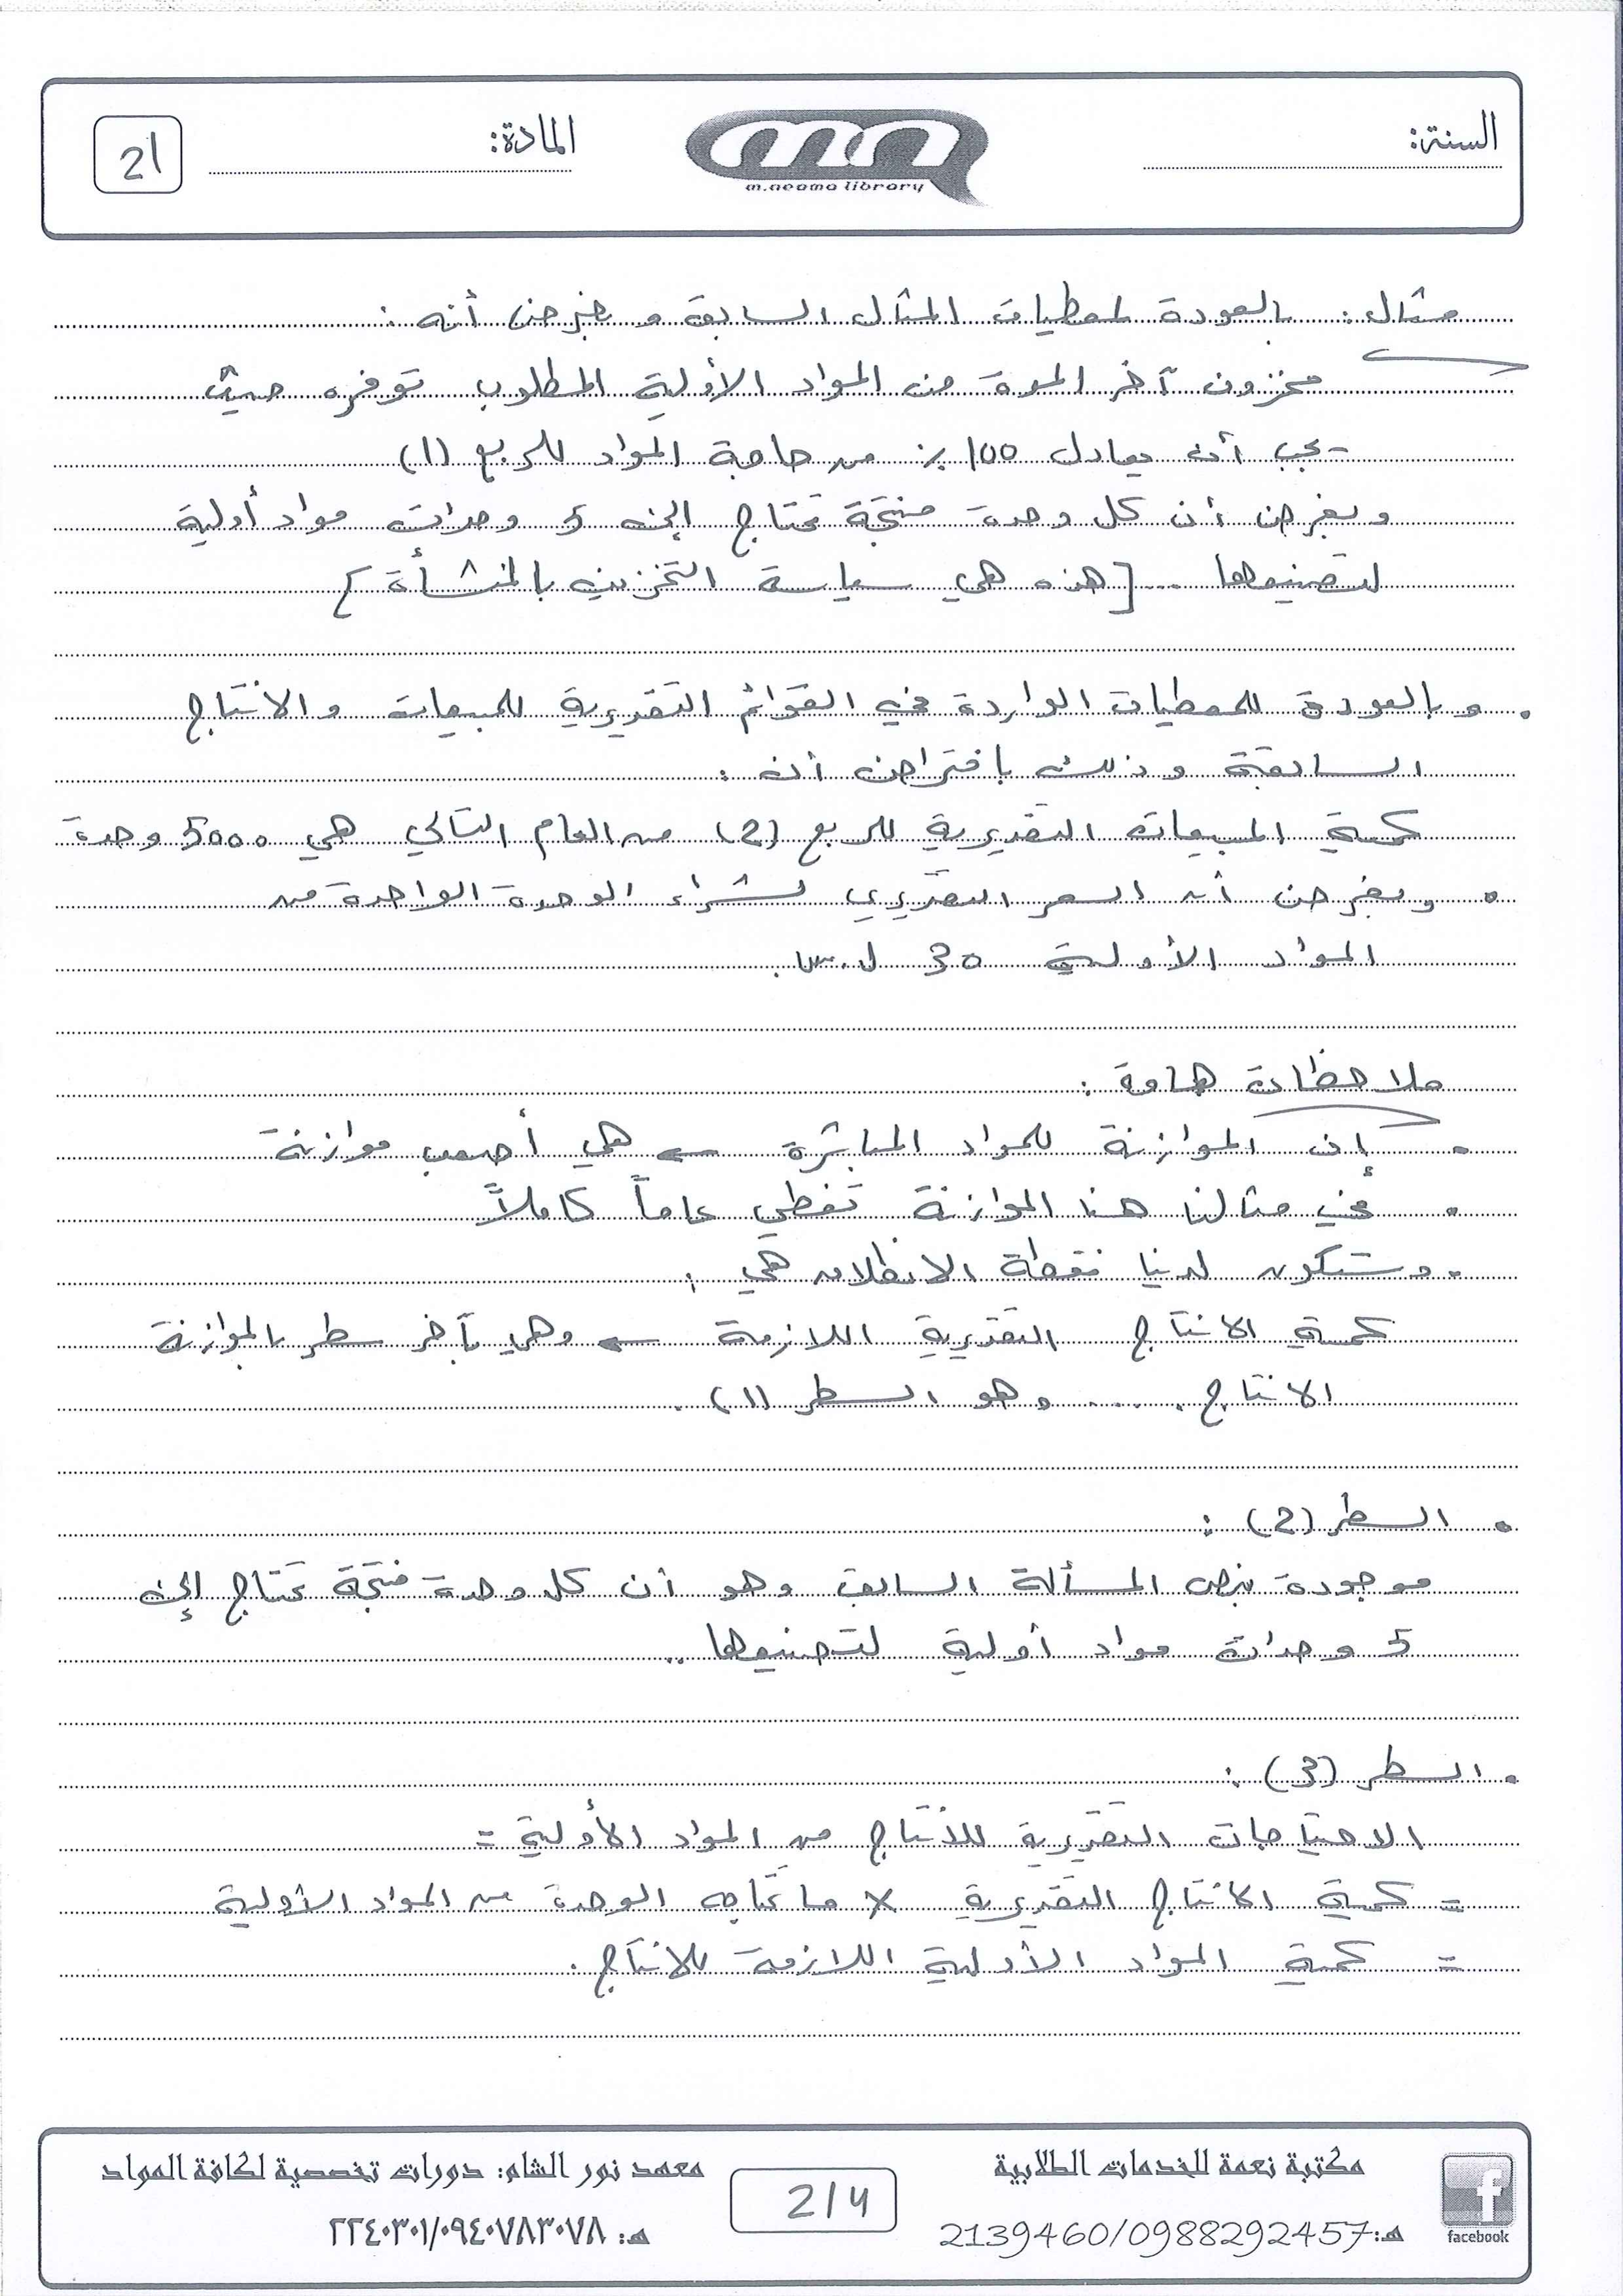 السنة:
المادة:
21
m.neama library
مثال: بالعودة لمعطيات المثال السابق وبفرض أنه:
مخزون آخر المدة من المواد الأولية المطلوب توفره حيث
يجب أن يعادل 100% من حاجة المواد للربع (1)
وبفرض أن كل وحدة منتجة تحتاج إلى 5 وحدات مواد أولية
لتصنيعها .. [هذه هي سياسة التخزين بالمنشأة]
. وبالعودة للمعطيات الواردة في القوائم التقديرية للمبيعات والانتاج
السابقة وذلك بافتراض أن:
كمية المبيعات التقديرية للربع (2) من العام التالي هي 5000 وحدة
• وبفرض أن السعر التقديري لشراء الوحدة الواحدة من
المواد الأولية 30 ل.س.
ملاحظات هامة:
. إن الموازنة للمواد المباشرة ← هي أصعب موازنة
. في مثالنا هنا الموازنة تغطي عاماً كاملاً
. وستكون لدينا نقطة الانطلاق هي:
كمية الانتاج التقديرية اللازمة ← وهي بآخر سطر بالموازنة
الانتاج ..... وهو السطر (1).
• السطر (2):
موجودة بنص المسألة السابق وهو أن كل وحدة منتجة تحتاج إلى
5 وحدات مواد أولية لتصنيعها ..
. السطر (3):
الاحتياجات التقديرية للانتاج من المواد الأولية =
= كمية الانتاج التقديرية × ما تحتاجه الوحدة من المواد الأولية
= كمية المواد الأولية اللازمة للانتاج.
مكتبة نعمة للخدمات الطلابية
هـ: 2139460/0988292457
facebook
2/4
معهد نور الشام: دورات تخصصية لكافة المواد
هـ: ٢٢٤٠٣٠١/٠٩٤٠٧٨٣٠٧٨